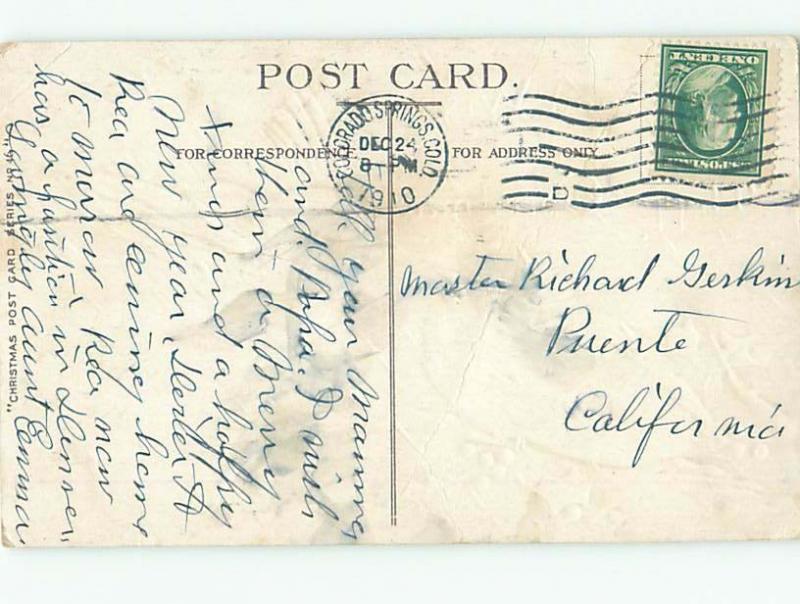 POST CARD.
FOR CORRESPONDENCE.
FOR ADDRESS ONLY.
COLORADO SPRINGS, COLO.
DEC 24
8 PM
1910
D
Master Richard Gerkin
Puente
California
Tell your Mamma
and Papa I wish
them a Merry
Xmas and a happy
New year, Hester &
Rea are coming home
to morrow Rea now
has a position in Denver,
Lovingly Aunt Emma
"CHRISTMAS POST CARD SERIES NO.